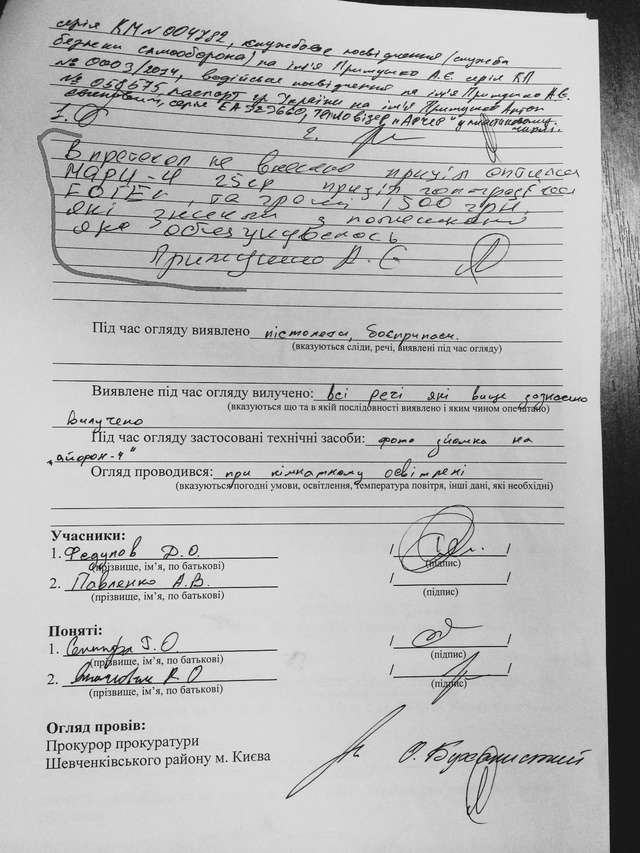 серія КМ N 004782, службове посвідчення (служба
безпеки самооборона) на ім'я Примушко А.Є. серія КП
№ 0003/2014, водійське посвідчення на ім'я Примушко А.Є.
№ 058575, паспорт гр. України на ім'я Примушко Антон
серія ЕА тепловізор „Арчер"
1.
2.
В протокол не внесено приціл оптичний
МАРЧ-4 25ср приціл
EOTEK, та гроші 1500 грн.
які зникли з помешкання
яке обшукувалось
Примушко А. Є
Під час огляду виявлено пістолети, боєприпаси.
(вказуються сліди, речі, виявлені під час огляду)
Виявлене під час огляду вилучено: всі речі які вище зазначено
(вказуються що та в якій послідовності виявлено і яким чином опечатано)
вилучено
Під час огляду застосовані технічні засоби: фото зйомка на
„айфон-4"
Огляд проводився: при кімнатному освітлені
(вказуються погодні умови, освітлення, температура повітря, інші дані, які необхідні)
Учасники:
1. Федулов Д.О. / /
(прізвище, ім'я, по батькові) (підпис)
2. Павленко А.В. / /
(прізвище, ім'я, по батькові) (підпис)
Поняті:
1. Г.О / /
(прізвище, ім'я, по батькові) (підпис)
2. К.О / /
(прізвище, ім'я, по батькові) (підпис)
Огляд провів:
Прокурор прокуратури
Шевченківського району м. Києва О.